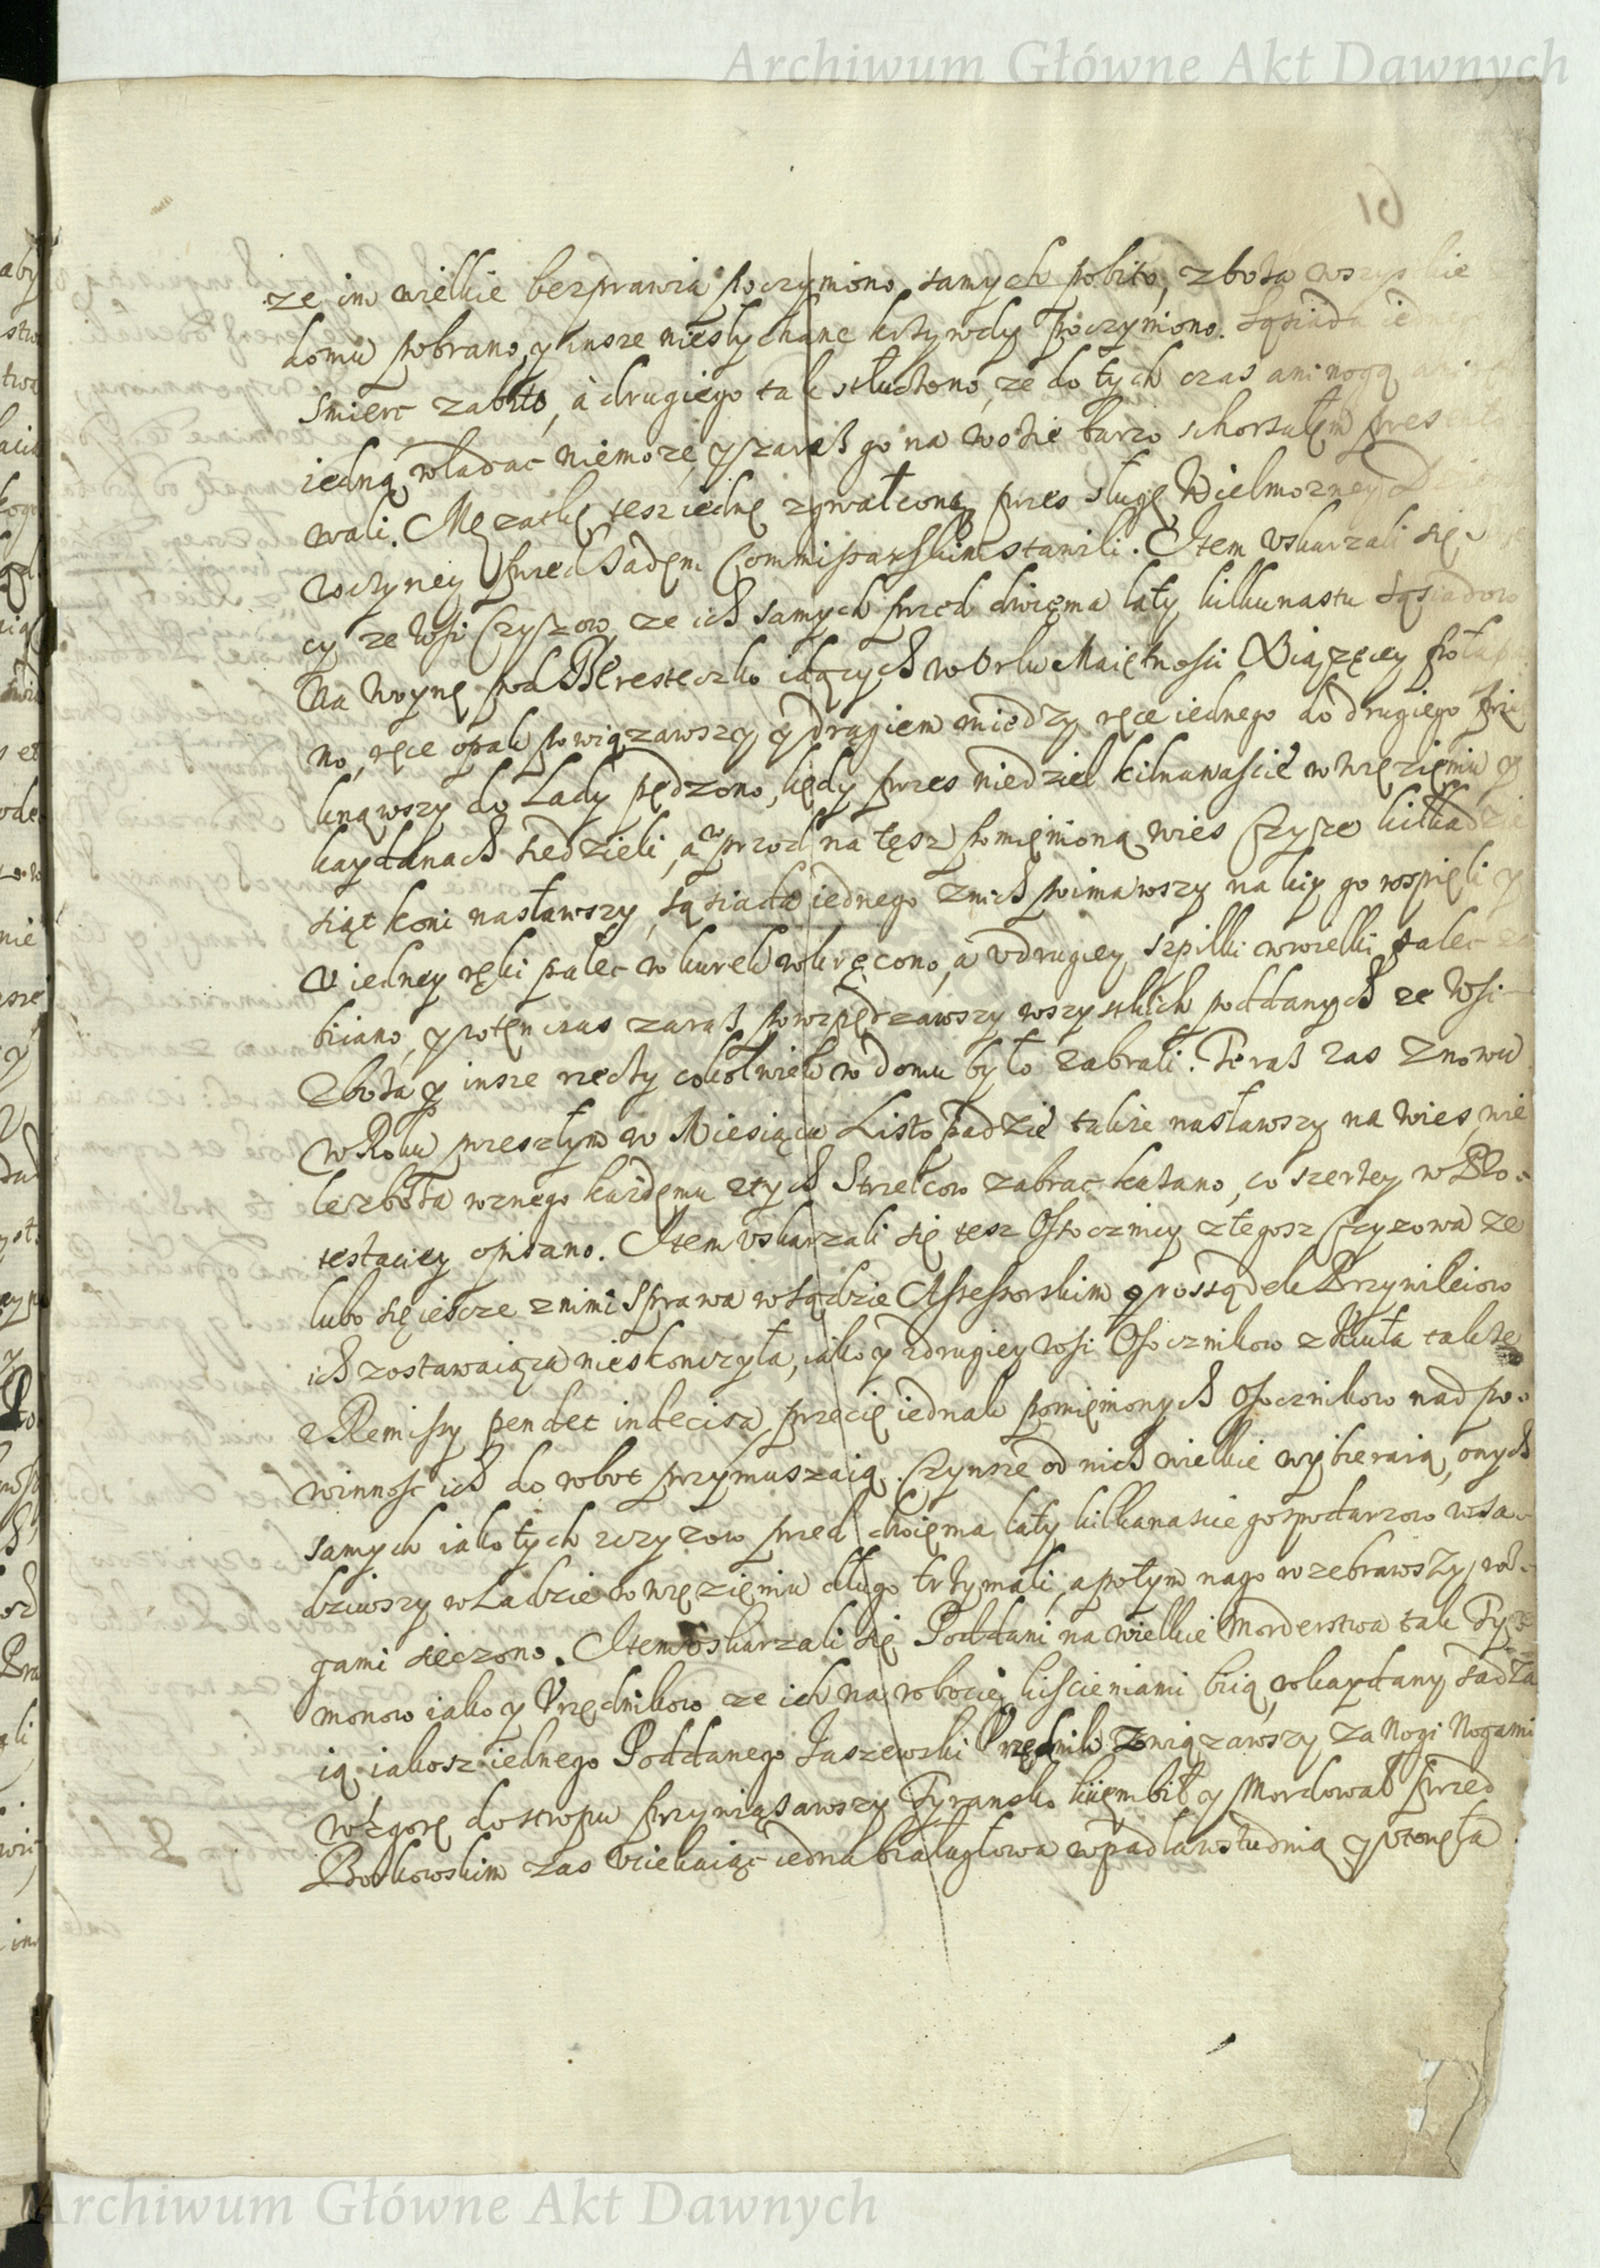 Archiwum Główne Akt Dawnych
61
ze im wielkie bezprawia poczyniono, samych pobito, zboża wszyskie
domu pobrano, y insze niesłychane krzywdy poczyniono. Sąsiada iedne
smierc zabito, a drugiego tak stłuczono, ze do tych czas ani nogą ani
iedną władac niemoze, y zaras go na wozie barzo schorzałem presento
wali. Męzatkę tesz iednę zgwałconą przes sługę Wielmozney
wczyney przed Sądem Commissarskim stawili. Item vskarzali się
cy ze Wsi Czyzow, ze ich samych przed dwięma laty kilkunastu Sąsiadow
Na woynę pod Beresteczko idących w Orlu Maiętnosci Xiązęcey połapa
no, ręce opak powiązawszy y drągiem miedzy ręce iednego do drugiego
knąwszy do Lady pędzono, kędy przes niedziel kilkanascie w więzięniu y
kaydanach siedzieli, a wprzod na tęsz pomięnioną wies Czyze kilkadzie
siąt koni nasławszy, sąsiada iednego znich poimawszy na kiy go rospięli y
V iedney ręki palec w kurek wkręcono, a v drugiey szpilki wwielki palec za
biiano, y potęn czas zaras powzpędzawszy wszystkich poddanych ze Wsi
Zboża y insze rzeczy cokolwiek w domu było zabrali. Teras zas znowu
w Roku przeszłym w Miesiącu Listopadzie także nasławszy na wies, wie
le zboża roznego każdemu ztych Strzelcow zabrac kazano, co szerzey w Pro
testaciey opisano. Item vskarzali się tesz Osocznicy z tegosz Czyzowa ze
lubo się iescze znimi Sprawa w Sądzie Assessorskim
ich zostawaiąca nieskonczyła, iako y zdrugiey wsi Osocznikow z Kluta takze
z Remissy pendet indecisa, przecię iednak pomięnionych Osocznikow nad po
winnosc ich do robot przymuszaią. Czynsze od nich wielkie wybieraią, onych
samych iako tych z Czyzow przed dwięma laty kilkanascie gospodarzow wsa
dziwszy w Ladzie w więzięniu długo trzymali, a potym nago rozebrawszy, roz
gami sieczono. Item vskarzali się Poddani na wielkie Morderstwa tak Ty
monow iako y Vrzędnikow ze ich na robocie kiscieniami biią, w kaydany sadza
ią iakosz iednego Poddanego Jaszewski Vrzędnik związawszy za Nogi Nogami
wzgorę do stropu przywiązawszy Tyransko kiięm bił y Mordował przed
Borkowskim zas vciekaiąc iedna białagłowa wpadła w studnią y vtonęła
Archiwum Główne Akt Dawnych